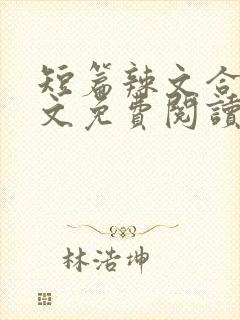 短篇辣文合
文免費閱讀
林浩坤